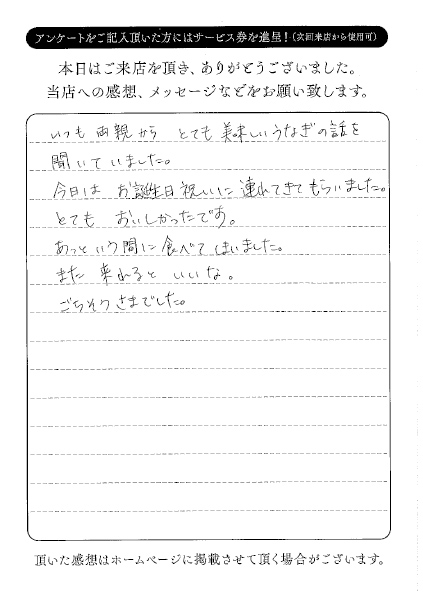 アンケートをご記入頂いた方にはサービス券を進呈！（次回来店から使用可）
本日はご来店を頂き、ありがとうございました。
当店への感想、メッセージなどをお願い致します。
いつも両親から とても美味しいうなぎの話を
聞いていました。
今日は お誕生日祝いに連れてきてもらいました。
とても おいしかったです。
あっという間に食べてしまいました。
また 来れると いいな。
ごちそうさまでした。
頂いた感想はホームページに掲載させて頂く場合がございます。